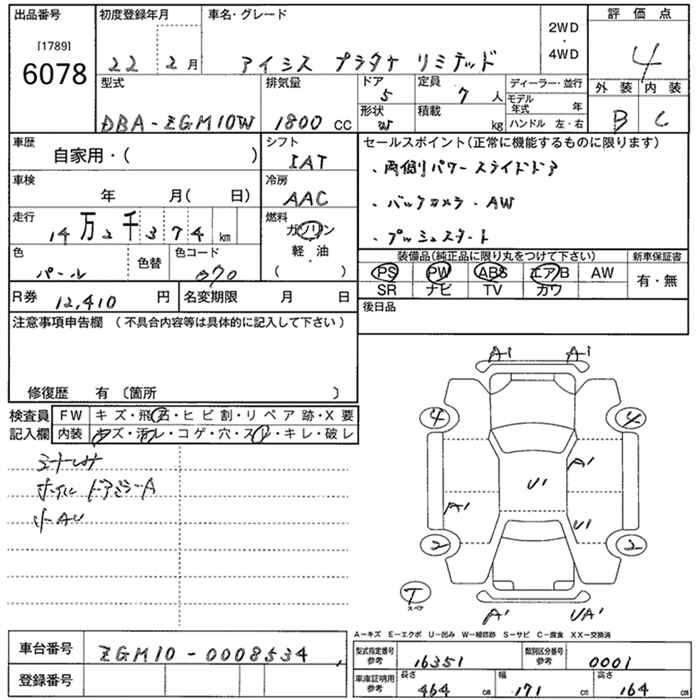 出品番号 初度登録年月 車名・グレード 2WD・4WD 評価点
[1789]
6078
22 2月 アイシス プラタナ リミテッド 4
型式 排気量 ドア 5 定員 7人 ディーラー・並行 外装 内装
DBA-ZGM10W 1800cc 形状 W 積載 kg モデル年式 年 B C
ハンドル 左・右
車歴 自家用・( ) シフト IAT セールスポイント(正常に機能するものに限ります)
車検 年 月( 日) 冷房 AAC ・両側パワースライドドア
・バックカメラ・AW
走行 14万2千374km 燃料 ガソリン・軽油 ( ) ・プッシュスタート
色 パール 色替 色コード 070 装備品(純正品に限り丸をつけて下さい) 新車保証書
PS PW ABS エアB AW 有・無
SR ナビ TV カワ
R券 12,410円 名変期限 月 日 後日品
注意事項申告欄(不具合内容等は具体的に記入して下さい)
修復歴 有〔箇所 〕
検査員 FW キズ・飛石・ヒビ割・リペア跡・X要
記入欄 内装 キズ・汚レ・コゲ・穴・スレ・キレ・破レ
ホイル ドアミラーA
A1 A1
4 4
A1
U1
A1
U1
2 2
T
スペア
A1 UA1
A-キズ E-エクボ U-凹み W-補修跡 S-サビ C-腐食 XX-交換済
車台番号 ZGM10-0008534 型式指定番号 参考 16351 類別区分番号 参考 0001
登録番号 車庫証明用 参考 長さ 464cm 幅 171cm 高さ 164cm